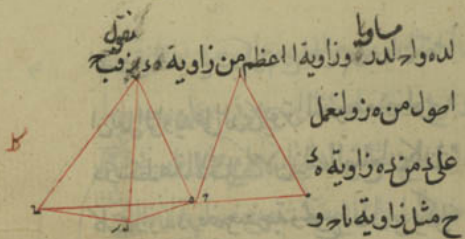 مساويا نقول
لده واح لدز وزاوية ا اعظم من زاوية ه د ز فبح
اطول من ه ز ولنعمل
على د من ده زاوية ه د
ح مثل زاوية ب ا ح و